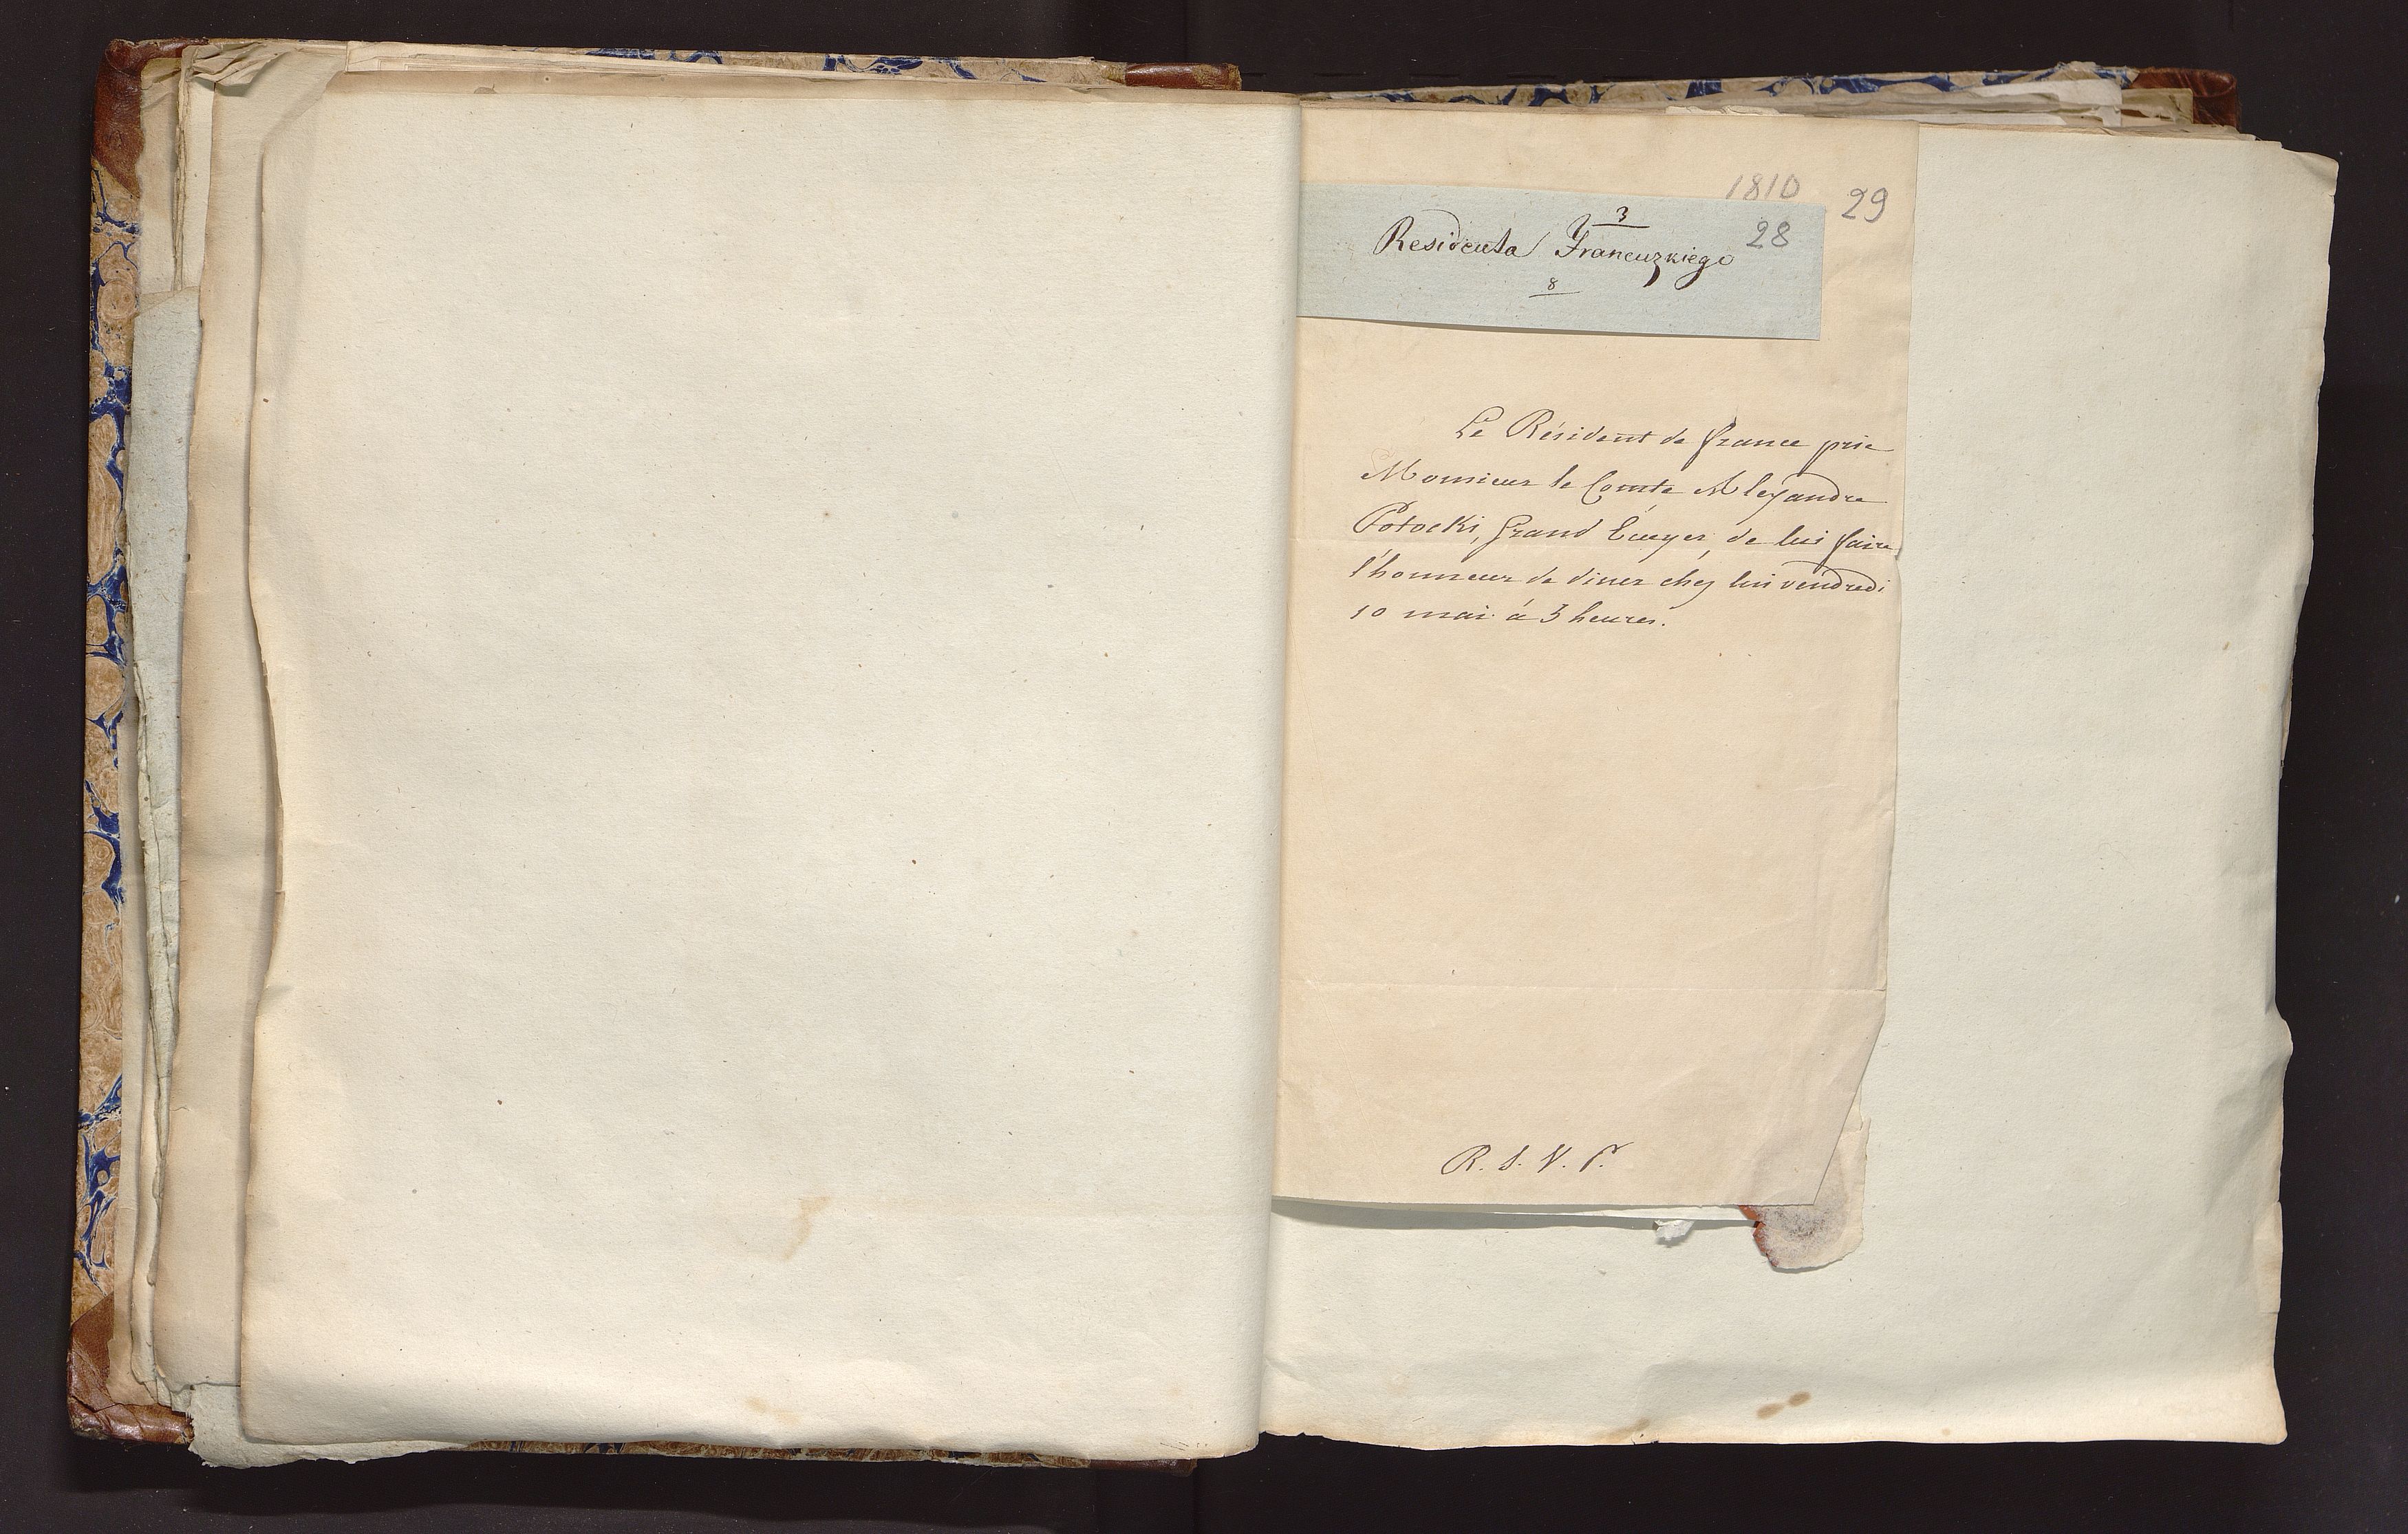 1810
29
28
3
Residenta Francuzkiego
8
Le Résident de france prie
Monsieur le Comte Alexandre
Potocki, Grand Ecuyer, de lui faire
l'honneur de diner chez lui vendredi
10 mai à 3 heures.
R. S. V. P.